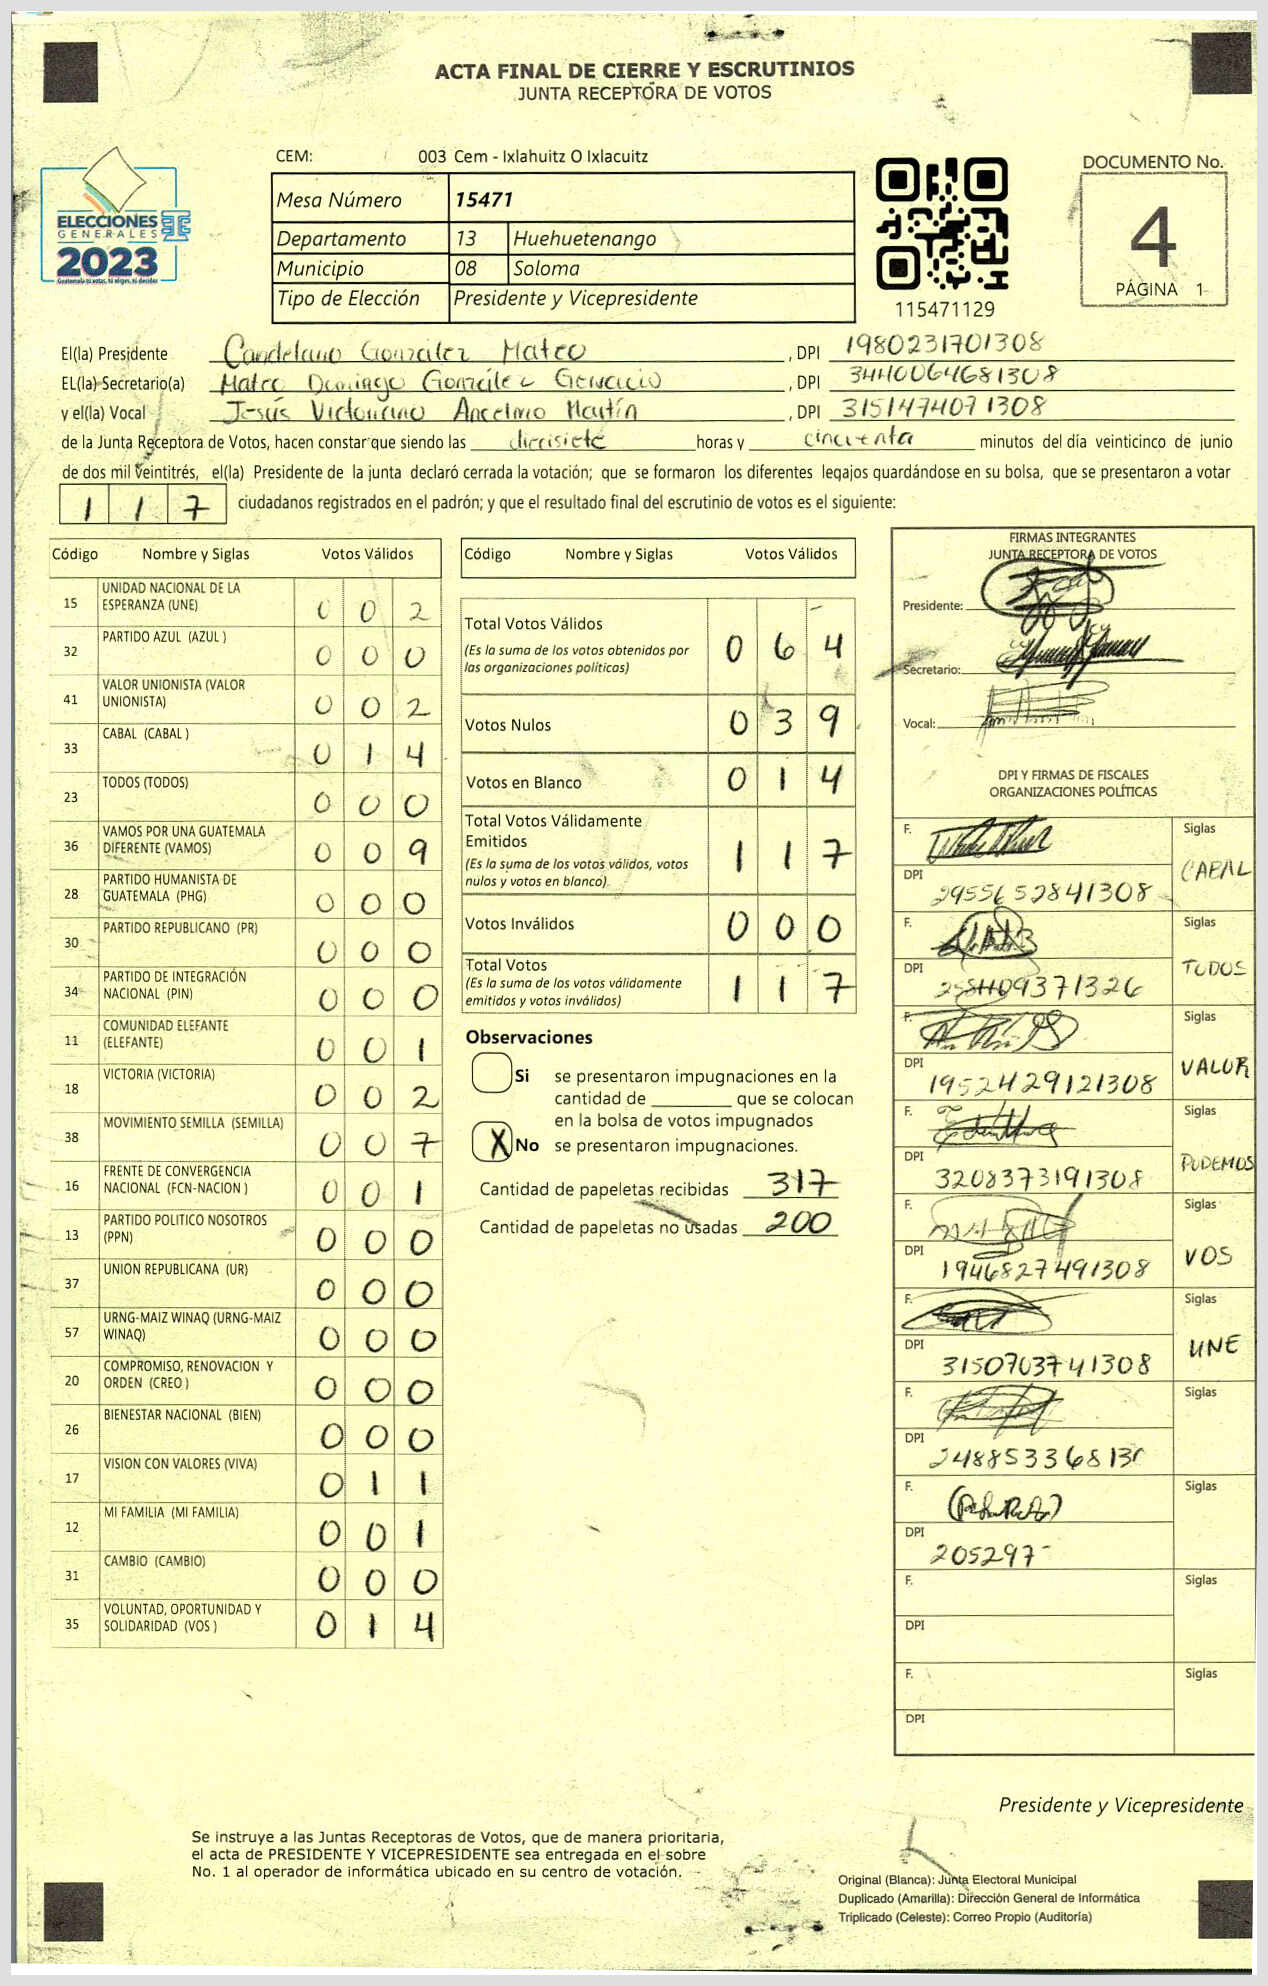 ACTA FINAL DE CIERRE Y ESCRUTINIOS
JUNTA RECEPTORA DE VOTOS
CEM: 003 Cem - Ixlahuitz O Ixlacuitz
ELECCIONES
GENERALES
2023
Guatemala tú votas, tú eliges, tú decides
Mesa Número 15471
Departamento 13 Huehuetenango
Municipio 08 Soloma
Tipo de Elección Presidente y Vicepresidente
115471129
DOCUMENTO No.
4
PÁGINA 1
El(la) Presidente Candelario González Mateo , DPI 1980231701308
EL(la) Secretario(a) Mateo Domingo González , DPI 3440064681308
y el(la) Vocal Jesús Victoriano Ancelmo Martín , DPI 3151474071308
de la Junta Receptora de Votos, hacen constar que siendo las diecisiete horas y cincuenta minutos del día veinticinco de junio
de dos mil veintitrés, el(la) Presidente de la junta declaró cerrada la votación; que se formaron los diferentes legajos guardándose en su bolsa, que se presentaron a votar
117 ciudadanos registrados en el padrón; y que el resultado final del escrutinio de votos es el siguiente:
Código Nombre y Siglas Votos Válidos
15 UNIDAD NACIONAL DE LA ESPERANZA (UNE) 002
32 PARTIDO AZUL (AZUL ) 000
41 VALOR UNIONISTA (VALOR UNIONISTA) 002
33 CABAL (CABAL ) 014
23 TODOS (TODOS) 000
36 VAMOS POR UNA GUATEMALA DIFERENTE (VAMOS) 009
28 PARTIDO HUMANISTA DE GUATEMALA (PHG) 000
30 PARTIDO REPUBLICANO (PR) 000
34 PARTIDO DE INTEGRACIÓN NACIONAL (PIN) 000
11 COMUNIDAD ELEFANTE (ELEFANTE) 001
18 VICTORIA (VICTORIA) 002
38 MOVIMIENTO SEMILLA (SEMILLA) 007
16 FRENTE DE CONVERGENCIA NACIONAL (FCN-NACION ) 001
13 PARTIDO POLITICO NOSOTROS (PPN) 000
37 UNION REPUBLICANA (UR) 000
57 URNG-MAIZ WINAQ (URNG-MAIZ WINAQ) 000
20 COMPROMISO, RENOVACION Y ORDEN (CREO ) 000
26 BIENESTAR NACIONAL (BIEN) 000
17 VISION CON VALORES (VIVA) 011
12 MI FAMILIA (MI FAMILIA) 001
31 CAMBIO (CAMBIO) 000
35 VOLUNTAD, OPORTUNIDAD Y SOLIDARIDAD (VOS ) 014
Código Nombre y Siglas Votos Válidos
Total Votos Válidos 064
(Es la suma de los votos obtenidos por
las organizaciones políticas)
Votos Nulos 039
Votos en Blanco 014
Total Votos Válidamente
Emitidos 117
(Es la suma de los votos válidos, votos
nulos y votos en blanco)
Votos Inválidos 000
Total Votos 117
(Es la suma de los votos válidamente
emitidos y votos inválidos)
Observaciones
Si se presentaron impugnaciones en la
cantidad de ________ que se colocan
en la bolsa de votos impugnados
X No se presentaron impugnaciones.
Cantidad de papeletas recibidas 317
Cantidad de papeletas no usadas 200
FIRMAS INTEGRANTES
JUNTA RECEPTORA DE VOTOS
Presidente:
Secretario:
Vocal:
DPI Y FIRMAS DE FISCALES
ORGANIZACIONES POLÍTICAS
F. Siglas
DPI 2955652841308 CABAL
F. Siglas
DPI TODOS
F. Siglas
DPI 1952429121308 VALOR
F. Siglas
DPI 3208373191308 PODEMOS
F. Siglas
DPI 1946827491308 VOS
F. Siglas
DPI 3150703741308 UNE
F. Siglas
DPI
F. Siglas
DPI 205297
F. Siglas
DPI
F. Siglas
DPI
Presidente y Vicepresidente
Se instruye a las Juntas Receptoras de Votos, que de manera prioritaria,
el acta de PRESIDENTE Y VICEPRESIDENTE sea entregada en el sobre
No. 1 al operador de informática ubicado en su centro de votación.
Original (Blanca): Junta Electoral Municipal
Duplicado (Amarilla): Dirección General de Informática
Triplicado (Celeste): Correo Propio (Auditoría)